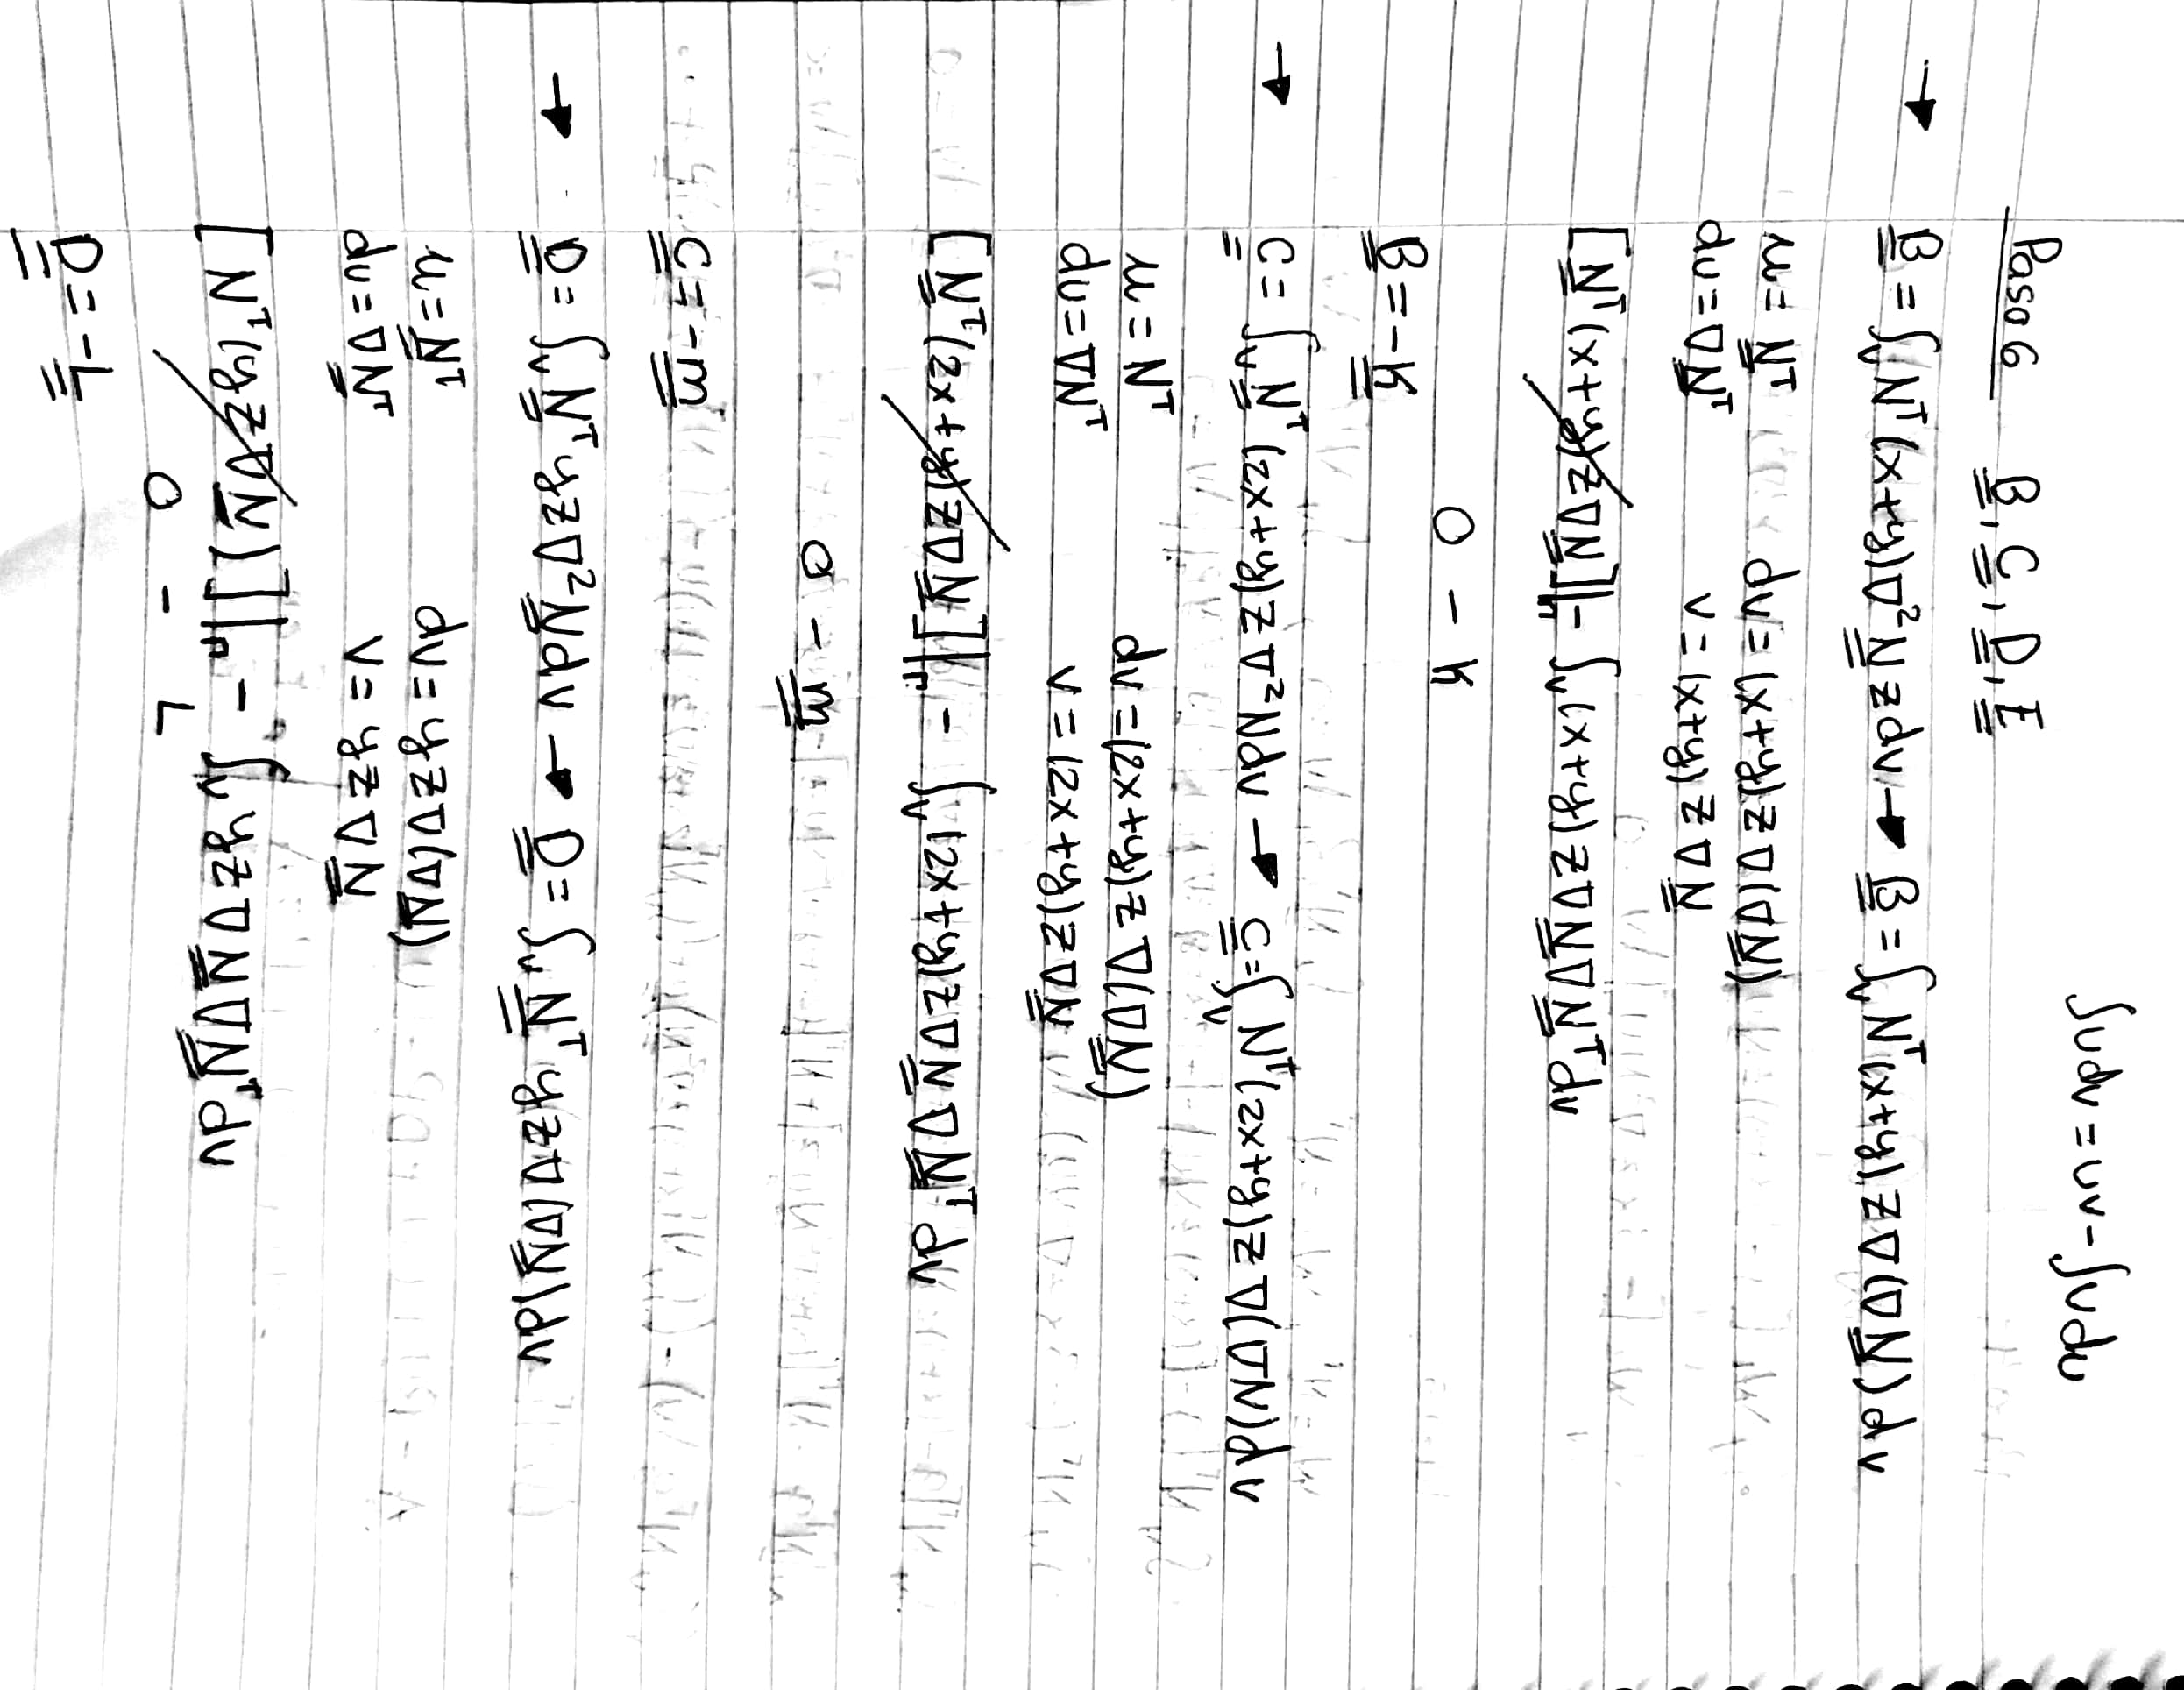 ∫udv = uv - ∫vdu
Paso 6 B̿, C̿, D̿, E̿
→ B̿ = ∫ᵥ Nᵀ (x+y)∇² N̿ z dv → B̿ = ∫ᵥ Nᵀ(x+y)z∇(∇N̿)dv
u = N̿ᵀ dv = (x+y)z∇(∇N̿)
du = ∇N̿ᵀ v = (x+y)z∇N̿
[N̿ᵀ(x+y)z∇N̿]|ₙ - ∫ᵥ(x+y)z∇N̿∇N̿ᵀ dv
0 - k
B̿ = - k̿
→ C̿ = ∫ᵥ N̿ᵀ (2x+y)z∇²Ndv → C̿ = ∫ᵥ Nᵀ(2x+y)z∇(∇N)dv
u = Nᵀ dv = (2x+y)z∇(∇N̿)
du = ∇Nᵀ v = (2x+y)z∇N̿
[N̿ᵀ(2x+y)z∇N̿]|ₙ - ∫ᵥ(2x+y)z∇N̿∇N̿ᵀ dv
0 - m̿
C̿ = - m̿
→ D̿ = ∫ᵥ N̿ᵀ yz∇²N̿dv → D̿ = ∫ᵥ N̿ᵀ yz∇(∇N̿)dv
u = N̿ᵀ dv = yz∇(∇N̿)
du = ∇N̿ᵀ v = yz∇N̿
[Nᵀ(yz∇N̿)]|ₙ - ∫ᵥ yz∇N̿∇N̿ᵀ dv
0 - L
D̿ = - L̿